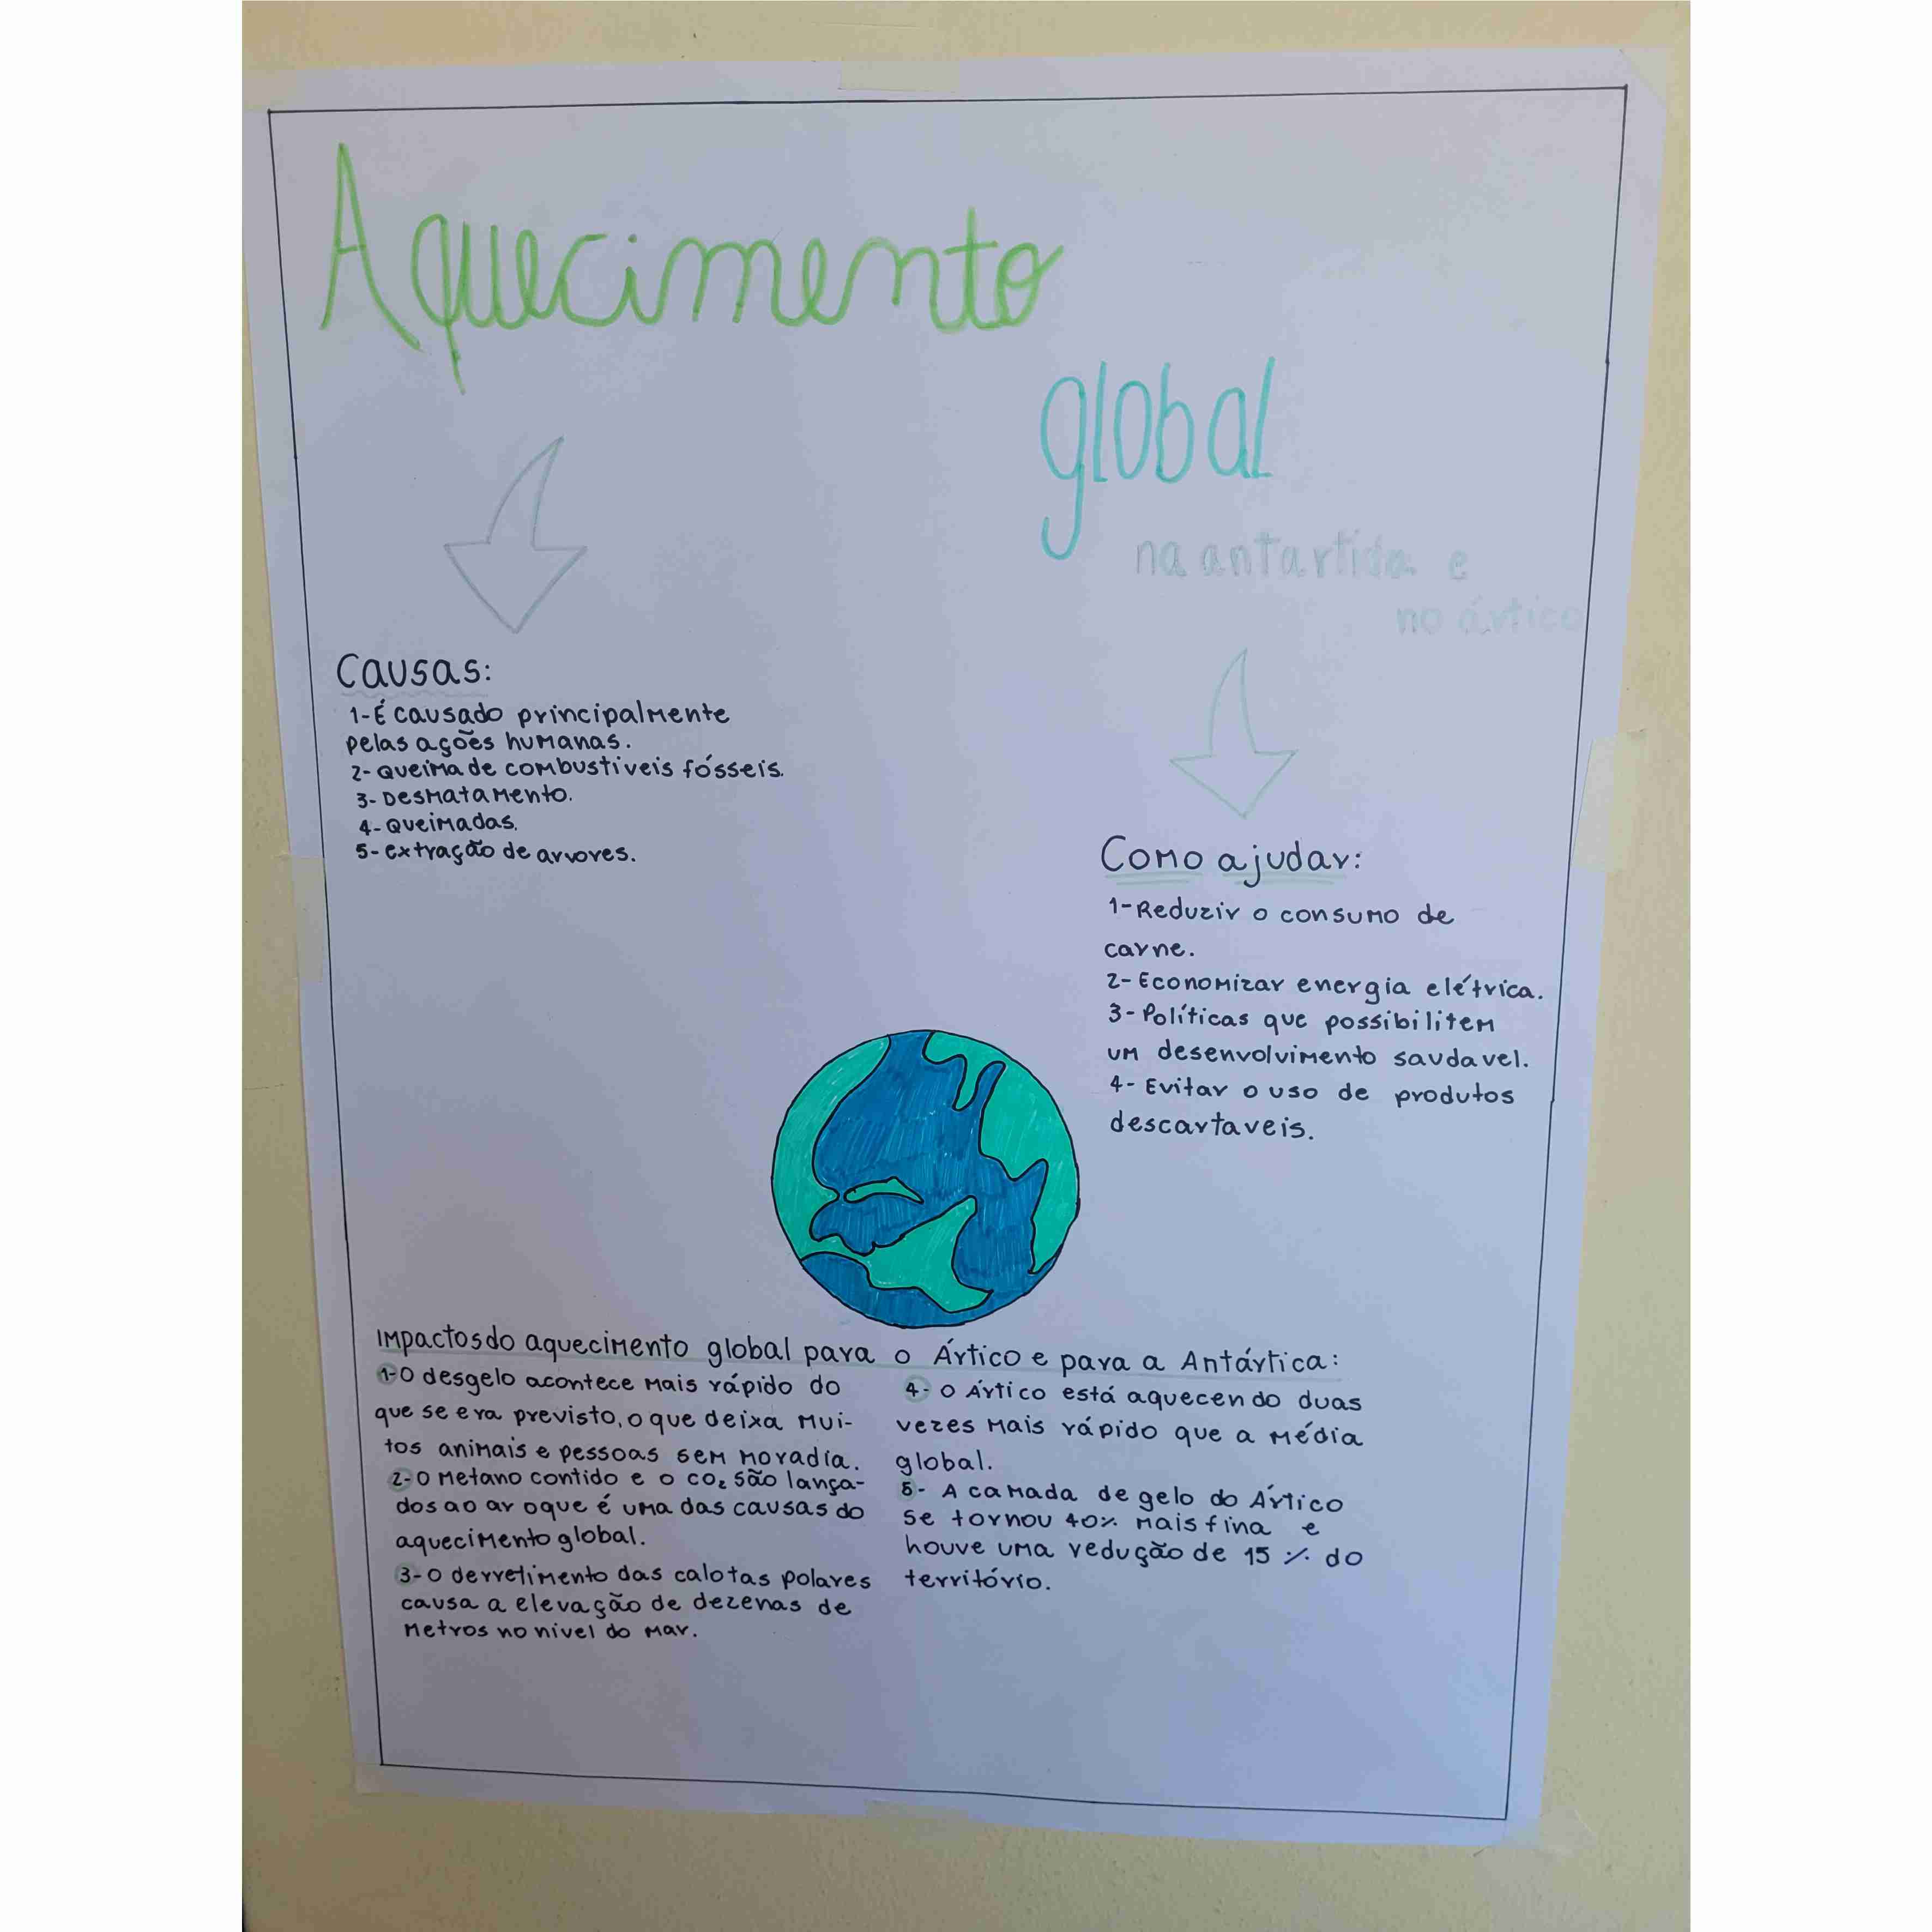 Aquecimento
global
na antartida e
no ártico
Causas:
1-É causado principalmente
pelas ações humanas.
2-Queima de combustíveis fósseis.
3-Desmatamento.
4-Queimadas.
5-extração de arvores.
Como ajudar:
1-Reduzir o consumo de
carne.
2-Economizar energia elétrica.
3-Políticas que possibilitem
um desenvolvimento saudavel.
4-Evitar o uso de produtos
descartaveis.
Impactos do aquecimento global para o Ártico e para a Antártica:
1-O desgelo acontece mais rápido do
que se era previsto, o que deixa mui-
tos animais e pessoas sem moradia.
2-O metano contido e o CO₂ são lança-
dos ao ar oque é uma das causas do
aquecimento global.
3-O derretimento das calotas polares
causa a elevação de dezenas de
metros no nivel do mar.
4-O Ártico está aquecendo duas
vezes mais rápido que a média
global.
5-A camada de gelo do Ártico
se tornou 40% mais fina e
houve uma redução de 15% do
território.